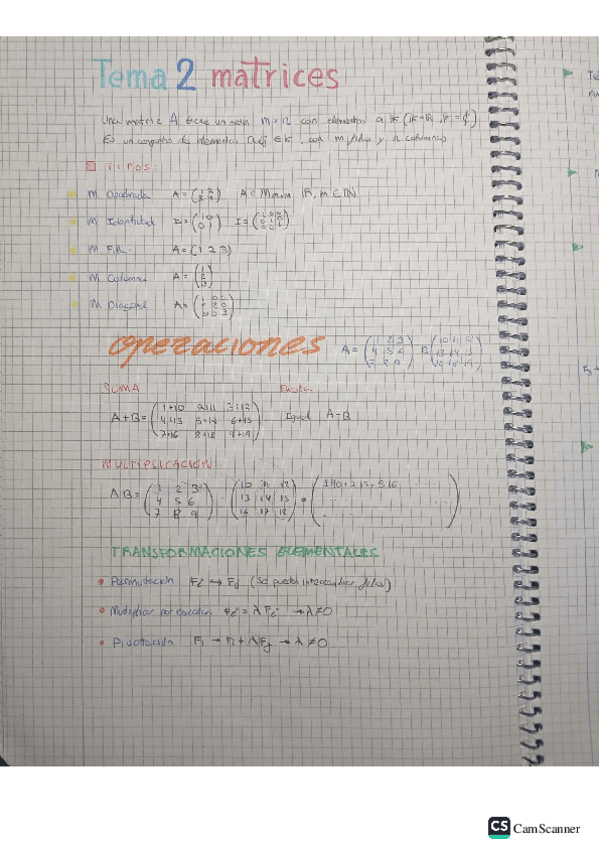 Tema 2 matrices
Una matriz A tiene un orden m × n con elementos a
Es un conjunto de elementos aij ∈ K, con m filas y n columnas
TIPOS:
M Cuadrada A = (1 2
3 4) A ∈ M IR, m ∈ IN
M Identidad I = (1 0
0 1) I = (1 0 0
0 1 0
0 0 1)
M Fila A = (1 2 3)
M Columna A = (1
2
3)
M Diagonal A = (1 0 0
0 2 0
0 0 3)
operaciones A = (1 2 3
4 5 6
7 8 9) B (10 11 12
13 14 15
16 17 18)
SUMA Resta
A+B = (1+10 2+11 3+12
4+13 5+14 6+15
7+16 8+18 9+19) Igual A-B
MULTIPLICACIÓN
AB = (1 2 3
4 5 6
7 8 9) · (10 11 12
13 14 15
16 17 18) =
TRANSFORMACIONES ELEMENTALES
Permutación Fi ↔ Fj (Se puede intercambiar filas)
Multiplicar por escalar Fi = λFi → λ≠0
Pivotación Fi → Fi + λFj → λ≠0
CS CamScanner